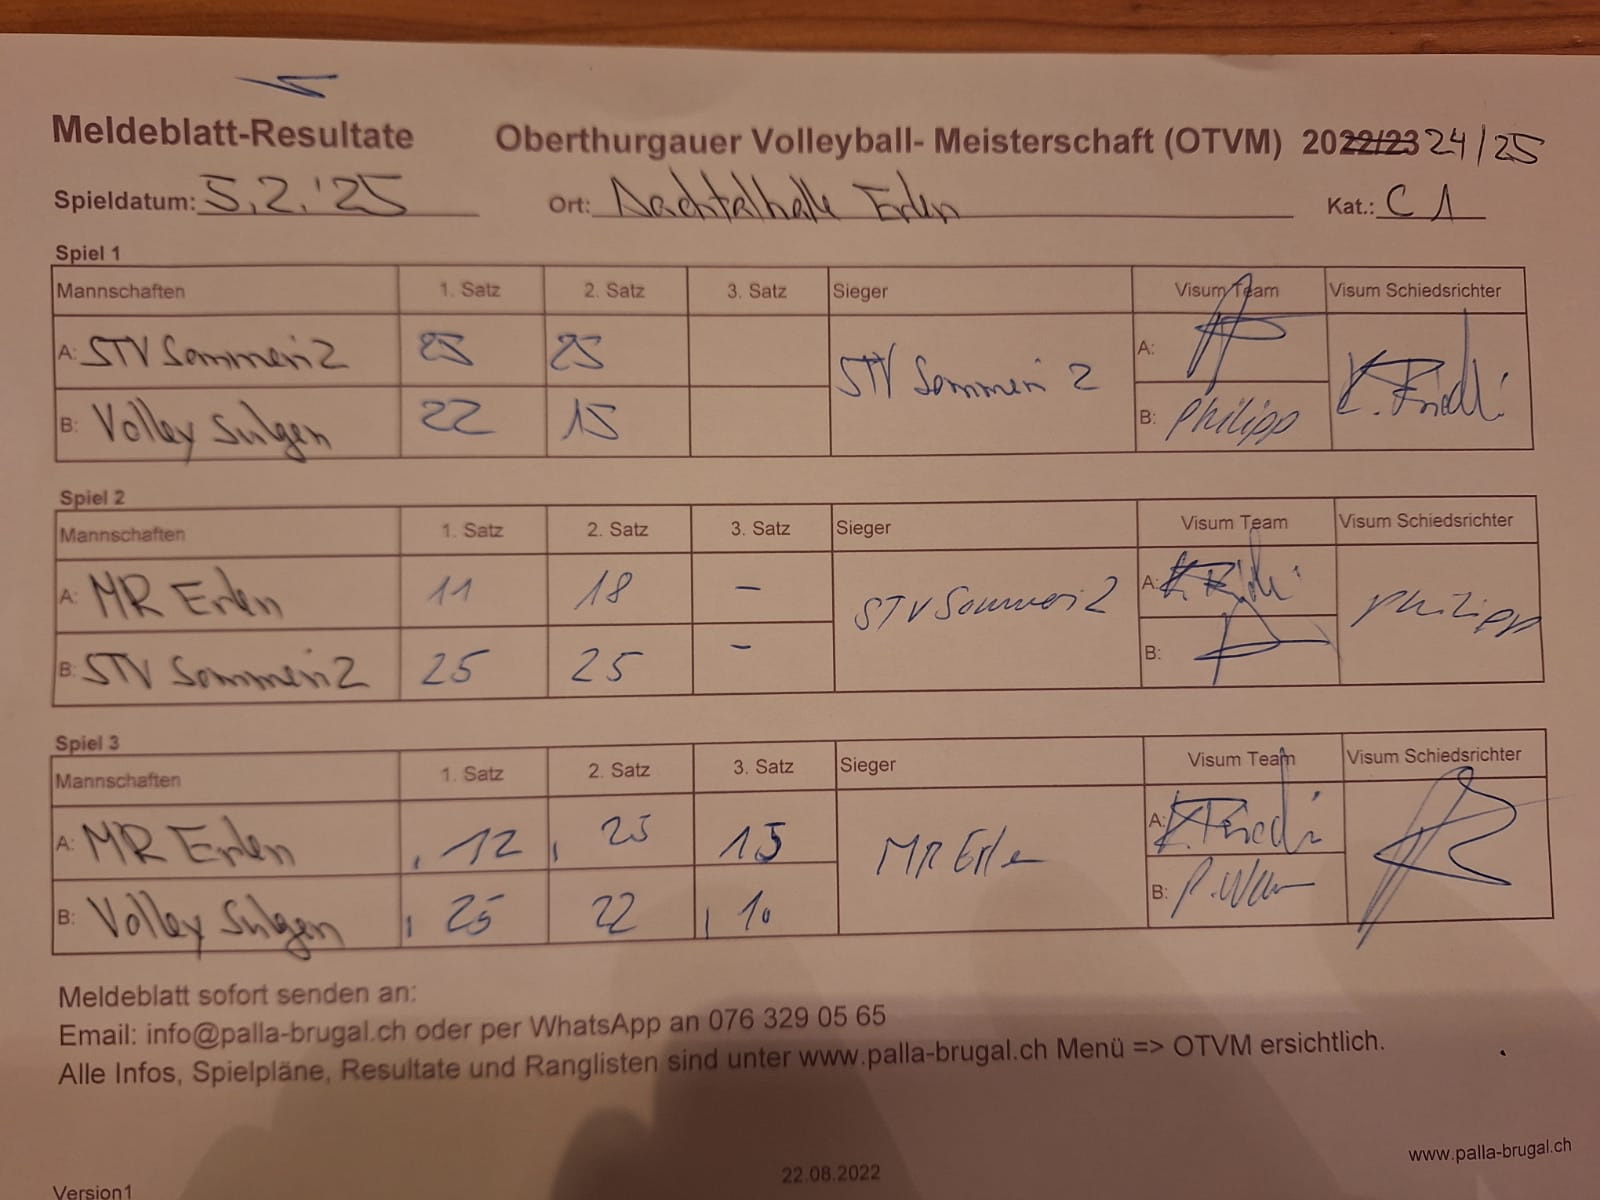 Meldeblatt-Resultate Oberthurgauer Volleyball- Meisterschaft (OTVM) 2022/23 24/25
Spieldatum: 5.2.'25 Ort: Aachtalhalle Erlen Kat.: C 1
Spiel 1
Mannschaften 1. Satz 2. Satz 3. Satz Sieger Visum Team Visum Schiedsrichter
A: STV Sommeri 2 25 25 STV Sommeri 2 A: K. Friedli
B: Volley Sulgen 22 15 B: Philipp
Spiel 2
Mannschaften 1. Satz 2. Satz 3. Satz Sieger Visum Team Visum Schiedsrichter
A: MR Erlen 11 18 – STV Sommeri 2 A: K. Friedli Philipp
B: STV Sommeri 2 25 25 – B:
Spiel 3
Mannschaften 1. Satz 2. Satz 3. Satz Sieger Visum Team Visum Schiedsrichter
A: MR Erlen 12 25 15 MR Erlen A: K. Friedli
B: Volley Sulgen 25 22 10 B:
Meldeblatt sofort senden an:
Email: info@palla-brugal.ch oder per WhatsApp an 076 329 05 65
Alle Infos, Spielpläne, Resultate und Ranglisten sind unter www.palla-brugal.ch Menü => OTVM ersichtlich.
www.palla-brugal.ch
22.08.2022
Version1